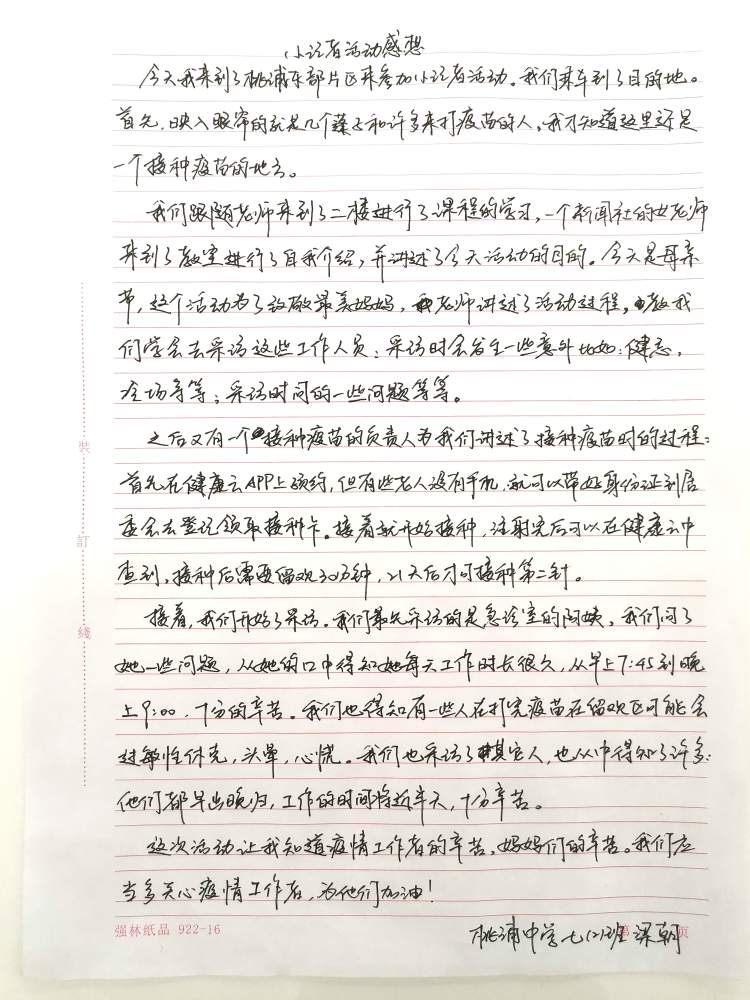 小记者活动感想
今天我来到了桃浦东部片区来参加小记者活动。我们乘车到了目的地。
首先,映入眼帘的就是几个蓬子和许多来打疫苗的人,我才知道这里还是
一个接种疫苗的地方。
我们跟随老师来到了二楼进行了课程的学习,一个新闻社的女老师
来到了教室进行了自我介绍,并讲述了今天活动的目的。今天是母亲
节,这个活动为了致敬最美妈妈,老师讲述了活动过程,教我
们学会去采访这些工作人员;采访时会发生一些意外比如:健忘,
冷场等等;采访时问的一些问题等等。
之后又有一个接种疫苗的负责人为我们讲述了接种疫苗时的过程:
首先在健康云APP上预约,但有些老人没有手机,就可以带好身份证到居
委会去登记领取接种卡。接着就开始接种,注射完后可以在健康云中
查到,接种后需要留观30分钟,21天后才可接种第二针。
接着,我们开始了采访。我们第先采访的是急诊室的阿姨,我们问了
她一些问题,从她的口中得知她每天工作时长很久,从早上7:45到晚
上9:00,十分的辛苦。我们也得知有一些人在打完疫苗在留观区可能会
过敏性休克,头晕,心慌。我们也采访了其它人,也从中得知了许多:
他们都早出晚归,工作的时间将近半天,十分辛苦。
这次活动让我知道疫情工作者的辛苦,妈妈们的辛苦。我们应
当多关心疫情工作者,为他们加油!
桃浦中学七(2)班 梁朝
强林纸品 922-16
第 页
装
訂
綫